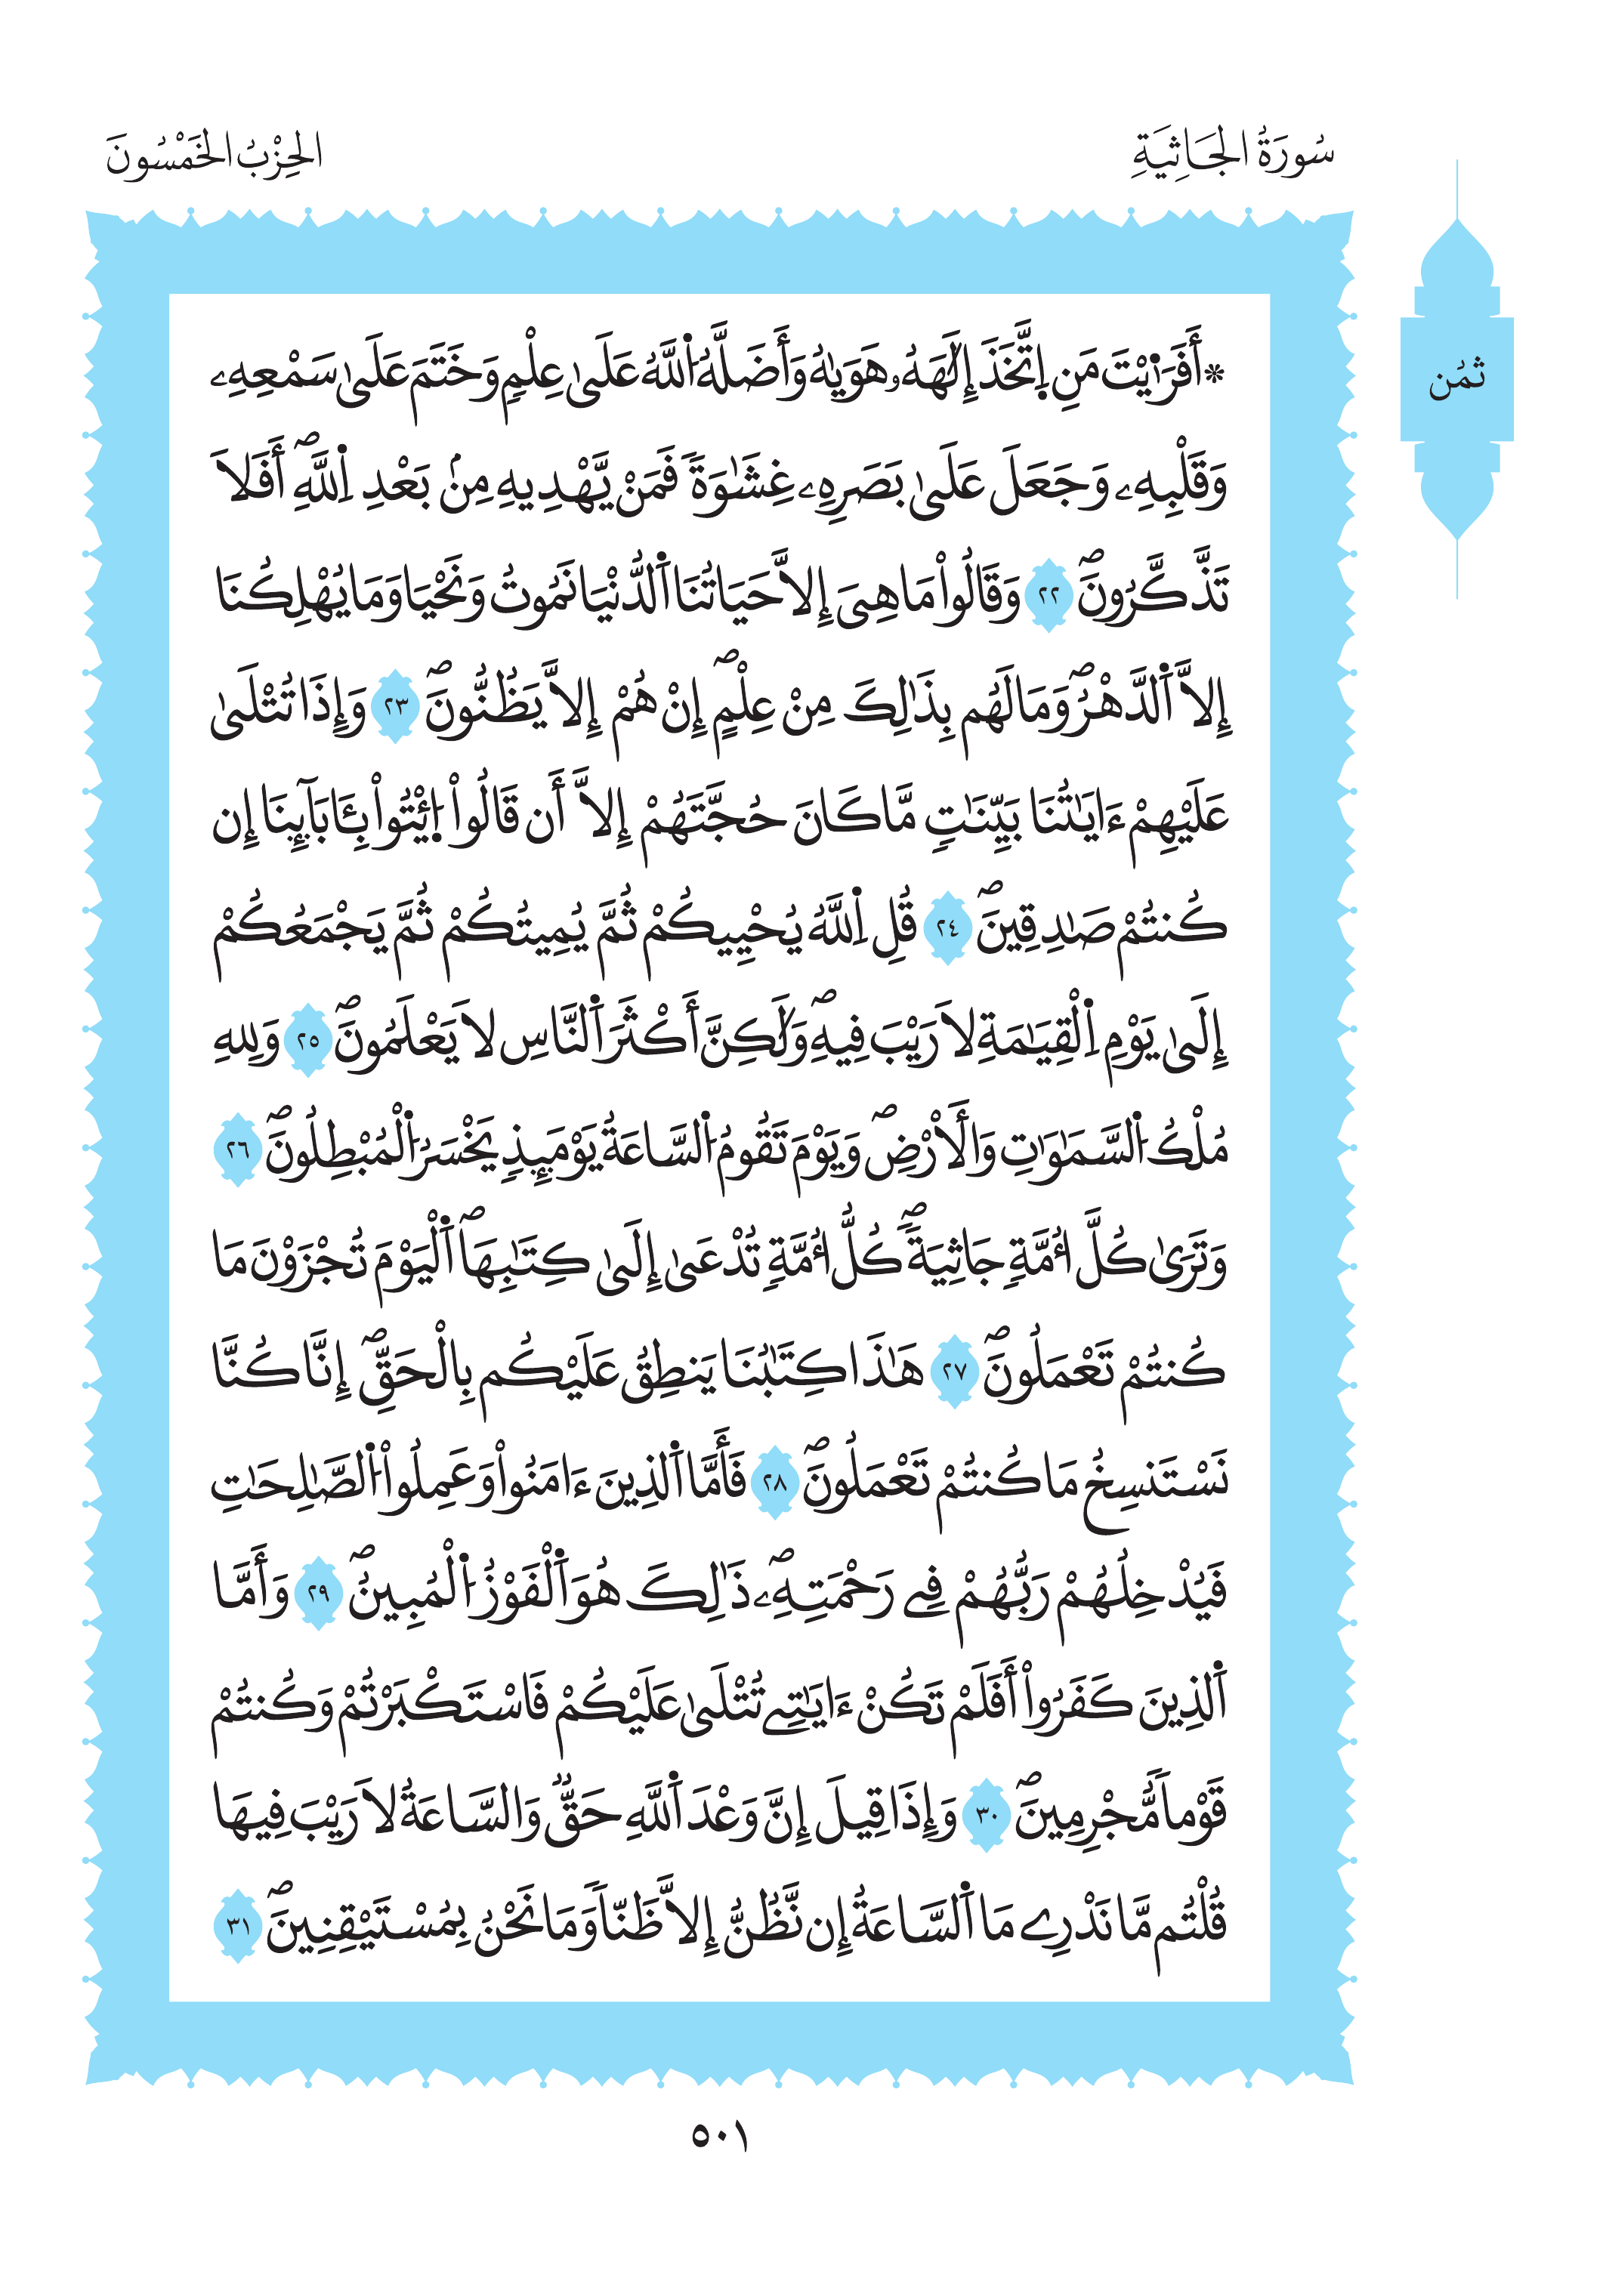 سُورَةُ الجَاثِيَةِ
الحِزْبُ الخَمْسُونَ
ثمُن
* أَفَرَٰيْتَ مَنِ اِتَّخَذَ إِلَٰهَهُۥ هَوَيٰهُ وَأَضَلَّهُ اُللَّهُ عَلَىٰ عِلْمٖ وَخَتَمَ عَلَىٰ سَمْعِهِۦ
وَقَلْبِهِۦ وَجَعَلَ عَلَىٰ بَصَرِهِۦ غِشَٰوَةٗ فَمَنْ يَّهْدِيهِ مِنۢ بَعْدِ اِللَّهِۖ أَفَلَا
تَذَّكَّرُونَۖ ٢٢ وَقَالُواْ مَا هِىَ إِلَّا حَيَاتُنَا اَلدُّنْيَا نَمُوتُ وَنَحْيَا وَمَا يُهْلِكُنَا
إِلَّا اَلدَّهْرُۖ وَمَا لَهُم بِذَٰلِكَ مِنْ عِلْمٍۖ إِنْ هُمْ إِلَّا يَظُنُّونَۖ ٢٣ وَإِذَا تُتْلَىٰ
عَلَيْهِمْ ءَايَٰتُنَا بَيِّنَٰتٖ مَّا كَانَ حُجَّتَهُمْ إِلَّا أَن قَالُواْ اُئْتُواْ بِـَٔابَآئِنَا إِن
كُنتُمْ صَٰدِقِينَۖ ٢٤ قُلِ اِللَّهُ يُحْيِيكُمْ ثُمَّ يُمِيتُكُمْ ثُمَّ يَجْمَعُكُمْ
إِلَىٰ يَوْمِ اِلْقِيَٰمَةِ لَا رَيْبَ فِيهِۖ وَلَٰكِنَّ أَكْثَرَ اَلنَّاسِ لَا يَعْلَمُونَۖ ٢٥ وَلِلهِ
مُلْكُ اُلسَّمَٰوَٰتِ وَالْأَرْضِۖ وَيَوْمَ تَقُومُ اُلسَّاعَةُ يَوْمَئِذٖ يَخْسَرُ اُلْمُبْطِلُونَۖ ٢٦
وَتَرَىٰ كُلَّ أُمَّةٖ جَاثِيَةٗۖ كُلُّ أُمَّةٖ تُدْعَىٰ إِلَىٰ كِتَٰبِهَاۖ اَلْيَوْمَ تُجْزَوْنَ مَا
كُنتُمْ تَعْمَلُونَۖ ٢٧ هَٰذَا كِتَٰبُنَا يَنطِقُ عَلَيْكُم بِالْحَقِّۖ إِنَّا كُنَّا
نَسْتَنسِخُ مَا كُنتُمْ تَعْمَلُونَۖ ٢٨ فَأَمَّا اَلذِينَ ءَامَنُواْ وَعَمِلُواْ اُلصَّٰلِحَٰتِ
فَيُدْخِلُهُمْ رَبُّهُمْ فِے رَحْمَتِهِۦۖ ذَٰلِكَ هُوَ اَلْفَوْزُ اُلْمُبِينُۖ ٢٩ وَأَمَّا
اَلذِينَ كَفَرُواْ أَفَلَمْ تَكُنْ ءَايَٰتِے تُتْلَىٰ عَلَيْكُمْ فَاسْتَكْبَرْتُمْ وَكُنتُمْ
قَوْماٗ مُّجْرِمِينَۖ ٣٠ وَإِذَا قِيلَ إِنَّ وَعْدَ اَللَّهِ حَقّٞ وَالسَّاعَةُ لَا رَيْبَ فِيهَا
قُلْتُم مَّا نَدْرِے مَا اَلسَّاعَةُ إِن نَّظُنُّ إِلَّا ظَنّاٗ وَمَا نَحْنُ بِمُسْتَيْقِنِينَۖ ٣١
٥٠١